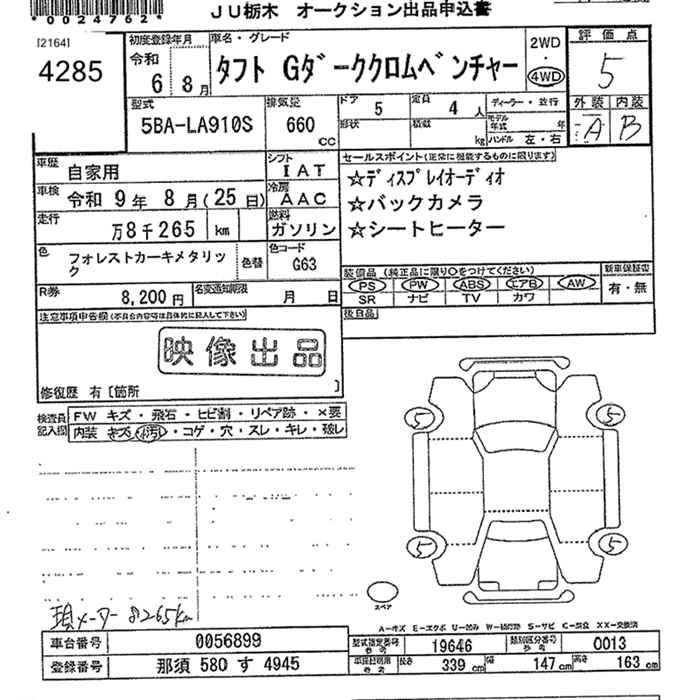 *0024762*
JU栃木 オークション出品申込書
[2164]
4285
初度登録年月
令和
6 8月
車名・グレード
タフト Gダーククロムベンチャー
2WD
・
4WD
評価点
5
外装 内装
A B
型式
5BA-LA910S
排気量
660
cc
ドア
5
定員
4 人
形状
積載
kg
ディーラー・並行
モデル年式 年
ハンドル 左・右
車歴
自家用
シフト
IAT
車検
令和 9年 8月(25日)
冷房
AAC
走行
万8千265 km
燃料
ガソリン
色
フォレストカーキメタリック
色替
色コード
G63
R券
8,200円
名変通知期限
月 日
セールスポイント(正常に機能するものに限ります)
☆ディスプレイオーディオ
☆バックカメラ
☆シートヒーター
装備品(純正品に限り○をつけてください)
PS PW ABS エアB AW
SR ナビ TV カワ
新車保証書
有・無
後日品
注意事項申告欄(不具合内容等は具体的に記入して下さい)
映像出品
修復歴 有[箇所 ]
検査員記入欄
FW キズ・飛石・ヒビ割・リペア跡・×要
内装 キズ・汚れ・コゲ・穴・スレ・キレ・破レ
5
5
5
5
スペア
現メーター 8265km
A-キズ E-エクボ U-凹み W-補修跡 S-サビ C-腐食 XX-交換済
車台番号 0056899
登録番号 那須 580 す 4945
型式指定番号 参考 19646
類別区分番号 参考 0013
車検証記載用 参考 長さ 339cm 幅 147cm 高さ 163cm